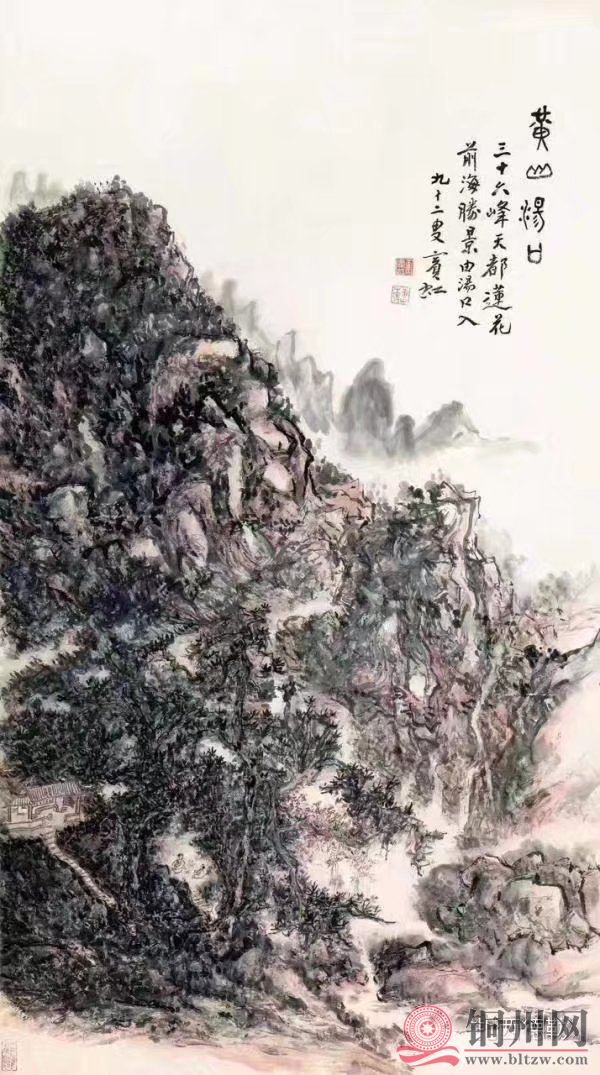 黄山湯口
三十六峰天都蓮花
前海勝景由湯口入
九十二叟賓虹
铜州网
www.bltzw.com